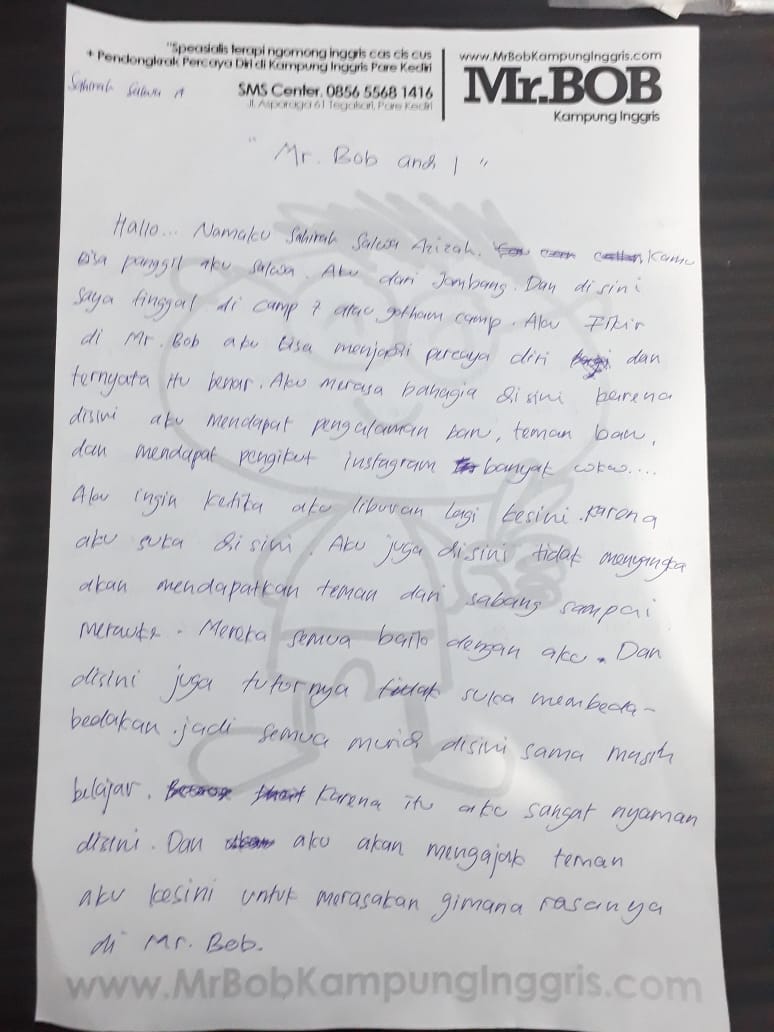 "Speasialis terapi ngomong inggris cas cis cus
+ Pendongkrak Percaya Diri di Kampung Inggris Pare Kediri
SMS Center. 0856 5568 1416
Jl. Asparaga 61 Tegalsari, Pare Kediri
www.MrBobKampungInggris.com
Mr.BOB
Kampung Inggris
Sahirah Salwa A
"Mr. Bob and I"
Hallo... Namaku Sahirah Salwa Azizah. Kamu
bisa panggil aku salwa. Aku dari Jombang. Dan disini
saya tinggal di camp 7 atau gotham camp. Aku Fikir
di Mr. Bob aku bisa menjadi percaya diri dan
ternyata itu benar. Aku merasa bahagia disini karena
disini aku mendapat pengalaman baru, teman baru,
dan mendapat pengikut instagram banyak wkw....
Aku ingin ketika aku liburan lagi kesini. Karena
aku suka disini. Aku juga disini tidak menyangka
akan mendapatkan teman dari sabang sampai
merauke. Mereka semua baik dengan aku. Dan
disini juga tutornya tidak suka membeda-
bedakan. jadi semua murid disini sama masih
belajar. Karena itu aku sangat nyaman
disini. Dan aku akan mengajak teman
aku kesini untuk merasakan gimana rasanya
di Mr. Bob.
www.MrBobKampungInggris.com